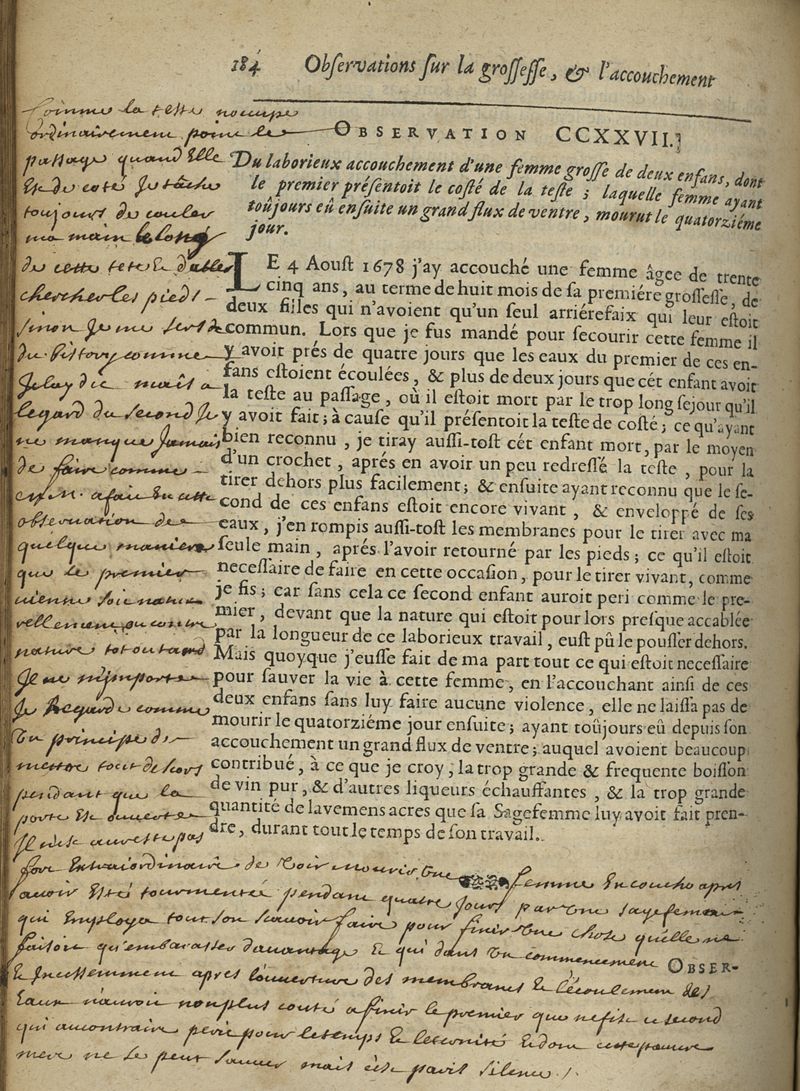 184 Obſervations ſur la groſſeſſe, & l'accouchement
OBSERVATION CCXXVII.
Du laborieux accouchement d'une femme groſſe de deux enfans, dont
le premier préſentoit le coſté de la teſte ; laquelle femme ayant
toûjours eû enſuite un grand flux de ventre, mourut le quatorziéme
jour.
LE 4 Aouſt 1678 j'ay accouché une femme âgée de trente
cinq ans, au terme de huit mois de ſa premiére groſſeſſe, de
deux filles qui n'avoient qu'un ſeul arriérefaix qui leur eſtoit
commun. Lors que je fus mandé pour ſecourir cette femme il
y avoit prés de quatre jours que les eaux du premier de ces en-
fans eſtoient écoulées, & plus de deux jours que cét enfant avoit
la teſte au paſſage, où il eſtoit mort par le trop long ſejour qu'il
y avoit fait ; à cauſe qu'il préſentoit la teſte de coſté ; ce qu'ayant
bien reconnu, je tiray auſſi-toſt cét enfant mort, par le moyen
d'un crochet, aprés en avoir un peu redreſſé la teſte, pour la
tirer dehors plus facilement ; & enſuite ayant reconnu que le ſe-
cond de ces enfans eſtoit encore vivant, & enveloppé de ſes
eaux, j'en rompis auſſi-toſt les membranes pour le tirer avec ma
ſeule main, aprés l'avoir retourné par les pieds ; ce qu'il eſtoit
neceſſaire de faire en cette occaſion, pour le tirer vivant, comme
je fis ; car ſans cela ce ſecond enfant auroit peri comme le pre-
mier, devant que la nature qui eſtoit pour lors preſque accablée
par la longueur de ce laborieux travail, euſt pû le pouſſer dehors.
Mais quoyque j'euſſe fait de ma part tout ce qui eſtoit neceſſaire
pour ſauver la vie à cette femme, en l'accouchant ainſi de ces
deux enfans ſans luy faire aucune violence, elle ne laiſſa pas de
mourir le quatorziéme jour enſuite ; ayant toûjours eû depuis ſon
accouchement un grand flux de ventre ; auquel avoient beaucoup
contribué, à ce que je croy, la trop grande & frequente boiſſon
de vin pur, & d'autres liqueurs échauffantes, & la trop grande
quantité de lavemens acres que ſa Sagefemme luy avoit fait pren-
dre, durant tout le temps de ſon travail.
la teste
ordinairement
passage quand elle
est de coté
toujours du couler
ma main le long
de cette teste
chercher les pieds
comme
je lay dit mais a
legard du second je
ne manque jamais
de faire comme
observation de
quelque maniere
que le premier
vienne soit natu
nature
je
comme
un principe de
mettre tout dehors
pendant que la
porte est ouverte
femme en couche apres
avoir esté tourmentée pendant quatre jours par une sagefemme
qui employe tout son scavoir faire pour finir une chose quelle ne
faisoit qu'embarasser davantage & qui dans un commencement
apres l'ouverture des membranes & l'écoulement des
eaux n'auroit non plus couté a finir le premier que ce second
mere ne le peut mais silence
OBSER-